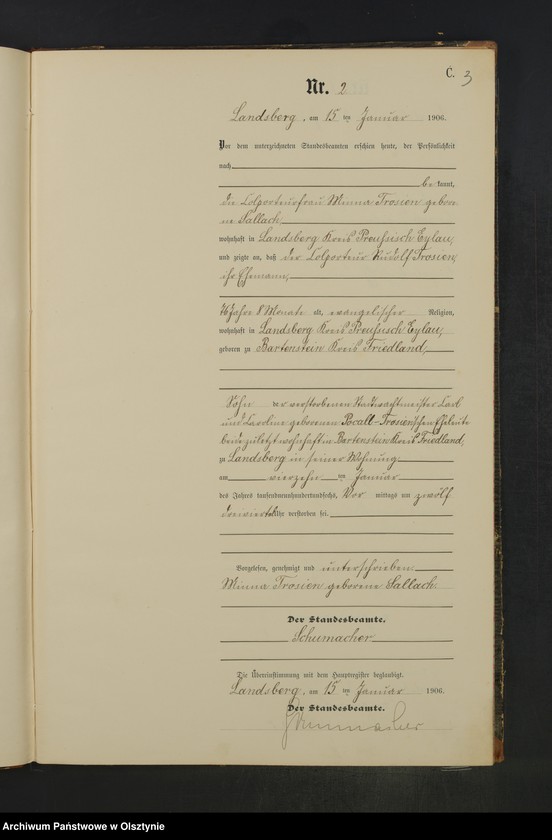 C. 3
Nr. 2
Landsberg, am 15 ten Januar 1906.
Vor dem unterzeichneten Standesbeamten erschien heute, der Persönlichkeit
nach
be kannt,
die Colporteurfrau Minna Trosien gebore
ne Sallach
wohnhaft in Landsberg Kreis Preußisch Eylau,
und zeigte an, daß der Colporteur Rudolf Trosien,
ihr Ehemann,
Jahre 8 Monate alt, evangelischer Religion,
wohnhaft in Landsberg Kreis Preußisch Eylau,
geboren zu Bartenstein Kreis Friedland,
Sohn der verstorbenen Stadtwachtmeister Carl
und Caroline geborenen Pocall-Trosien'schen Eheleute
beide zuletzt wohnhaft in Bartenstein Kreis Friedland,
zu Landsberg in seiner Wohnung
am vierzehn ten Januar
des Jahres tausendneunhundertundsechs, Vor mittags um zwölf
dreiviertel Uhr verstorben sei.
Vorgelesen, genehmigt und unterschrieben.
Minna Trosien geborene Sallach.
Der Standesbeamte.
Schumacher
Die Übereinstimmung mit dem Hauptregister beglaubigt.
Landsberg, am 15 ten Januar 1906.
Der Standesbeamte.
Schumacher
Archiwum Państwowe w Olsztynie